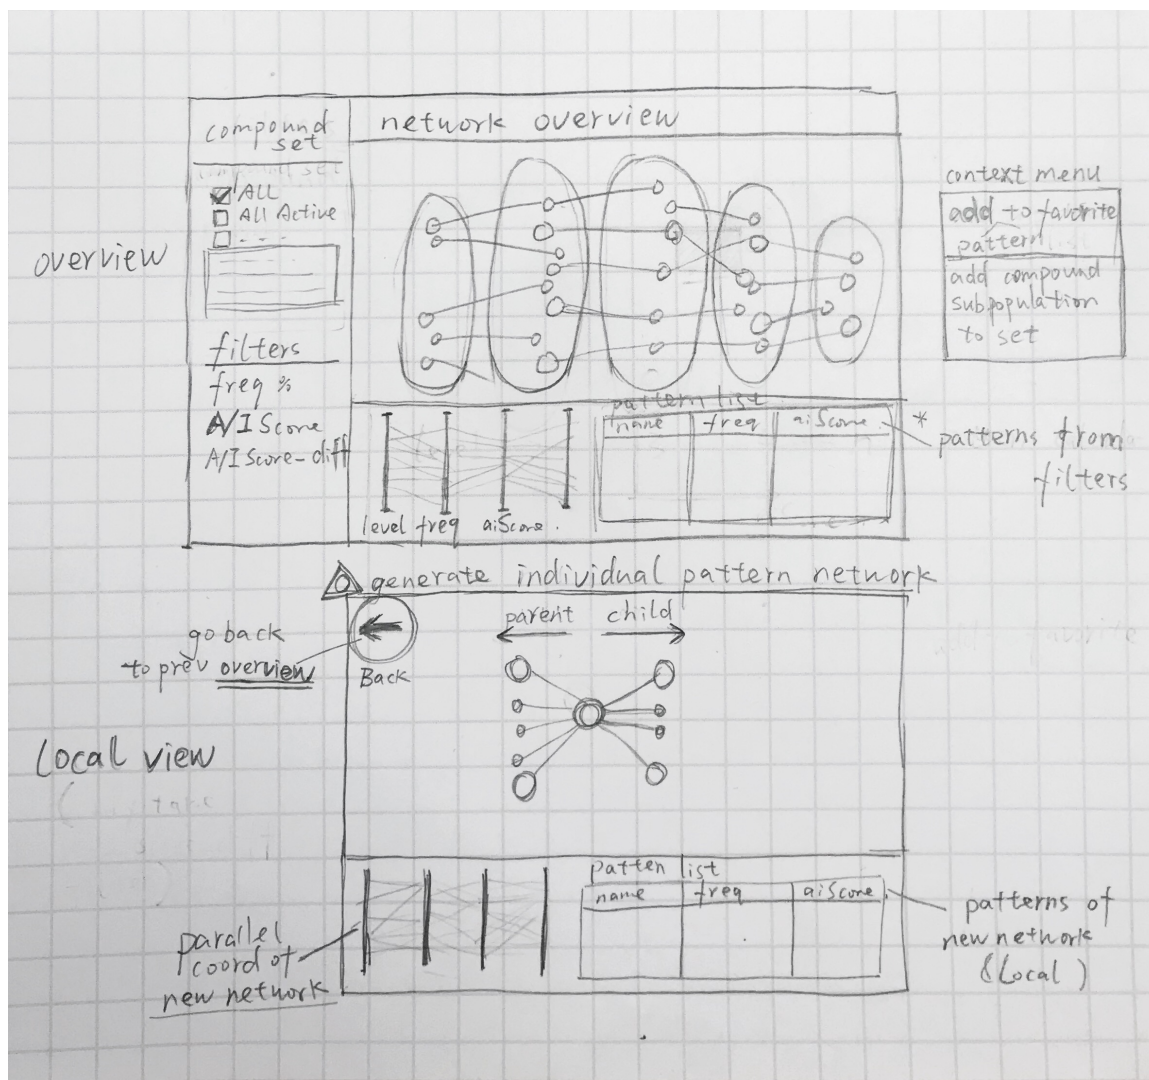 compound
set
network overview
ALL
All Active
- - -
overview
context menu
add to favorite
pattern
add compound
subpopulation
to set
filters
freq %
A/I Score
A/I Score-diff
level freq aiScore .
pattern list
name freq aiScore
*
patterns from
filters
generate individual pattern network
go back
to prev overview
Back
parent child
Local view
patten list
name freq aiScore
parallel
coord of
new network
patterns of
new network
(Local)